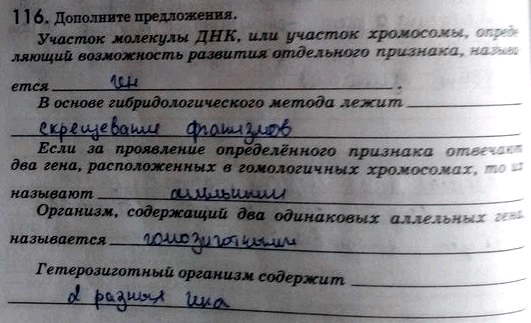 116. Дополните предложения.
Участок молекулы ДНК, или участок хромосомы, опреде-
ляющий возможность развития отдельного признака, называ
ется ген .
В основе гибридологического метода лежит
скрещевание организмов
Если за проявление определённого признака отвечают
два гена, расположенных в гомологичных хромосомах, то их
называют аллельными
Организм, содержащий два одинаковых аллельных гена
называется гомозиготными
Гетерозиготный организм содержит
2 разных гена